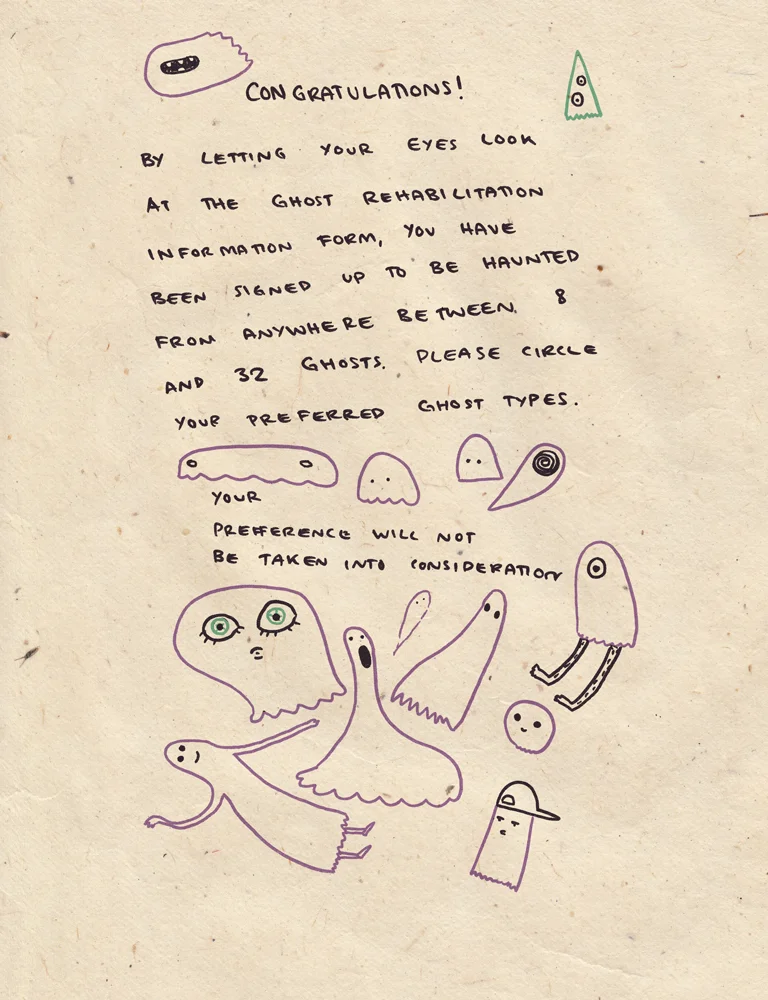 CONGRATULATIONS!
BY LETTING YOUR EYES LOOK
AT THE GHOST REHABILITATION
INFORMATION FORM, YOU HAVE
BEEN SIGNED UP TO BE HAUNTED
FROM ANYWHERE BETWEEN 8
AND 32 GHOSTS. PLEASE CIRCLE
YOUR PREFERRED GHOST TYPES.
YOUR
PREFERENCE WILL NOT
BE TAKEN INTO CONSIDERATION